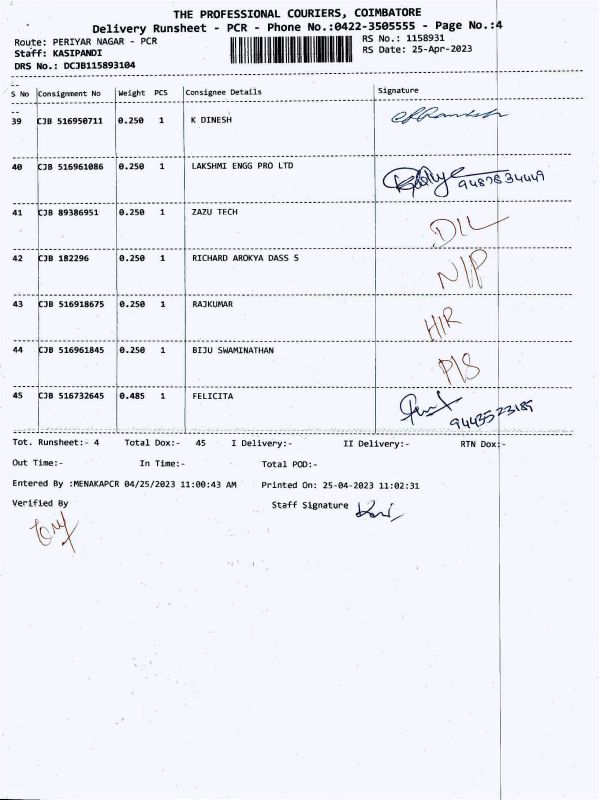 THE PROFESSIONAL COURIERS, COIMBATORE
Delivery Runsheet - PCR - Phone No.:0422-3505555 - Page No.:4
Route: PERIYAR NAGAR - PCR RS No.: 1158931
Staff: KASIPANDI RS Date: 25-Apr-2023
DRS No.: DCJB115893104
S No Consignment No Weight PCS Consignee Details Signature
39 CJB 516950711 0.250 1 K DINESH
40 CJB 516961086 0.250 1 LAKSHMI ENGG PRO LTD 9487834449
41 CJB 89386951 0.250 1 ZAZU TECH D/L
42 CJB 182296 0.250 1 RICHARD AROKYA DASS S N/P
43 CJB 516918675 0.250 1 RAJKUMAR H/R
44 CJB 516961845 0.250 1 BIJU SWAMINATHAN P/S
45 CJB 516732645 0.485 1 FELICITA 9443523189
Tot. Runsheet:- 4 Total Dox:- 45 I Delivery:- II Delivery:- RTN Dox:-
Out Time:- In Time:- Total POD:-
Entered By :MENAKAPCR 04/25/2023 11:00:43 AM Printed On: 25-04-2023 11:02:31
Verified By Staff Signature